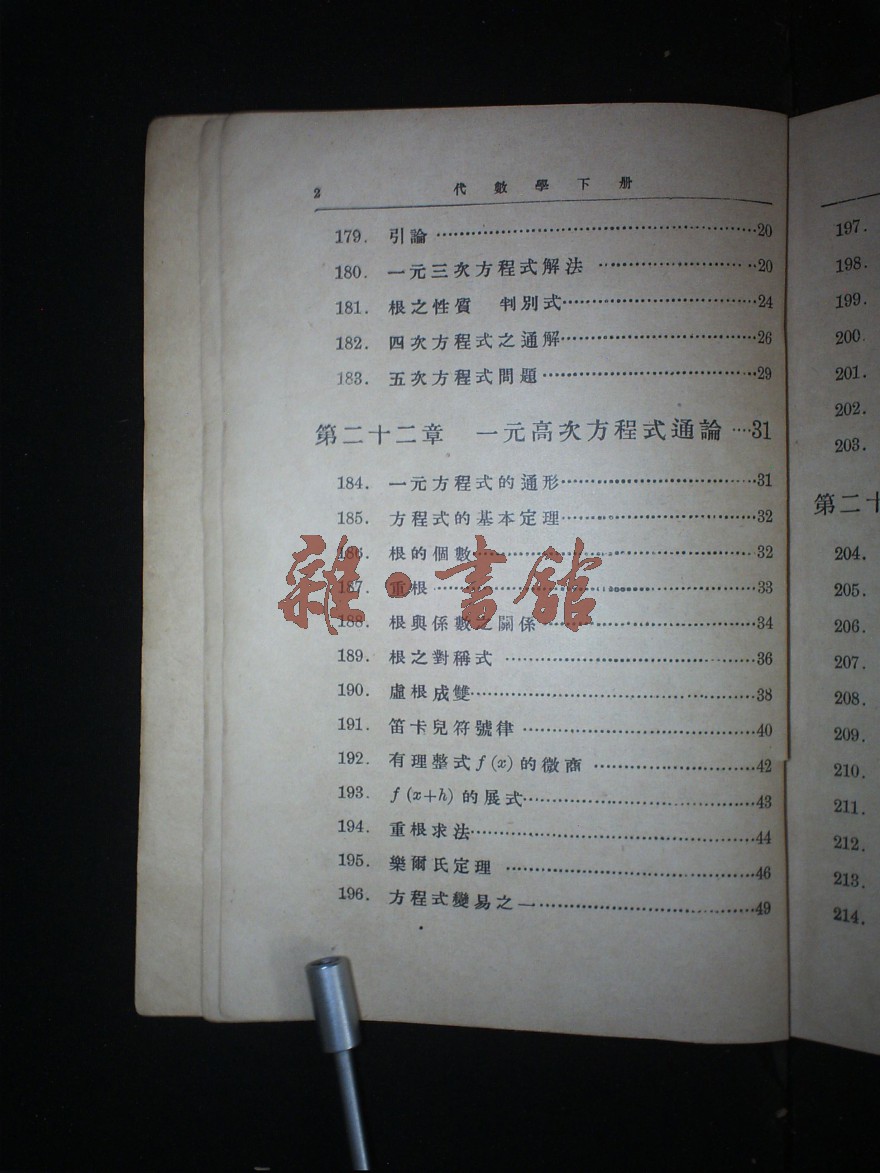 2 代數學下册
179. 引論 20
180. 一元三次方程式解法 20
181. 根之性質 判別式 24
182. 四次方程式之通解 26
183. 五次方程式問題 29
第二十二章 一元高次方程式通論 31
184. 一元方程式的通形 31
185. 方程式的基本定理 32
186. 根的個數 32
187. 重根 33
188. 根與係數之關係 34
189. 根之對稱式 36
190. 虛根成雙 38
191. 笛卡兒符號律 40
192. 有理整式 f (x) 的微商 42
193. f (x+h) 的展式 43
194. 重根求法 44
195. 樂爾氏定理 46
196. 方程式變易之一 49
雜·書館
197.
198.
199.
200.
201.
202.
203.
第二十
204.
205.
206.
207.
208.
209.
210.
211.
212.
213.
214.